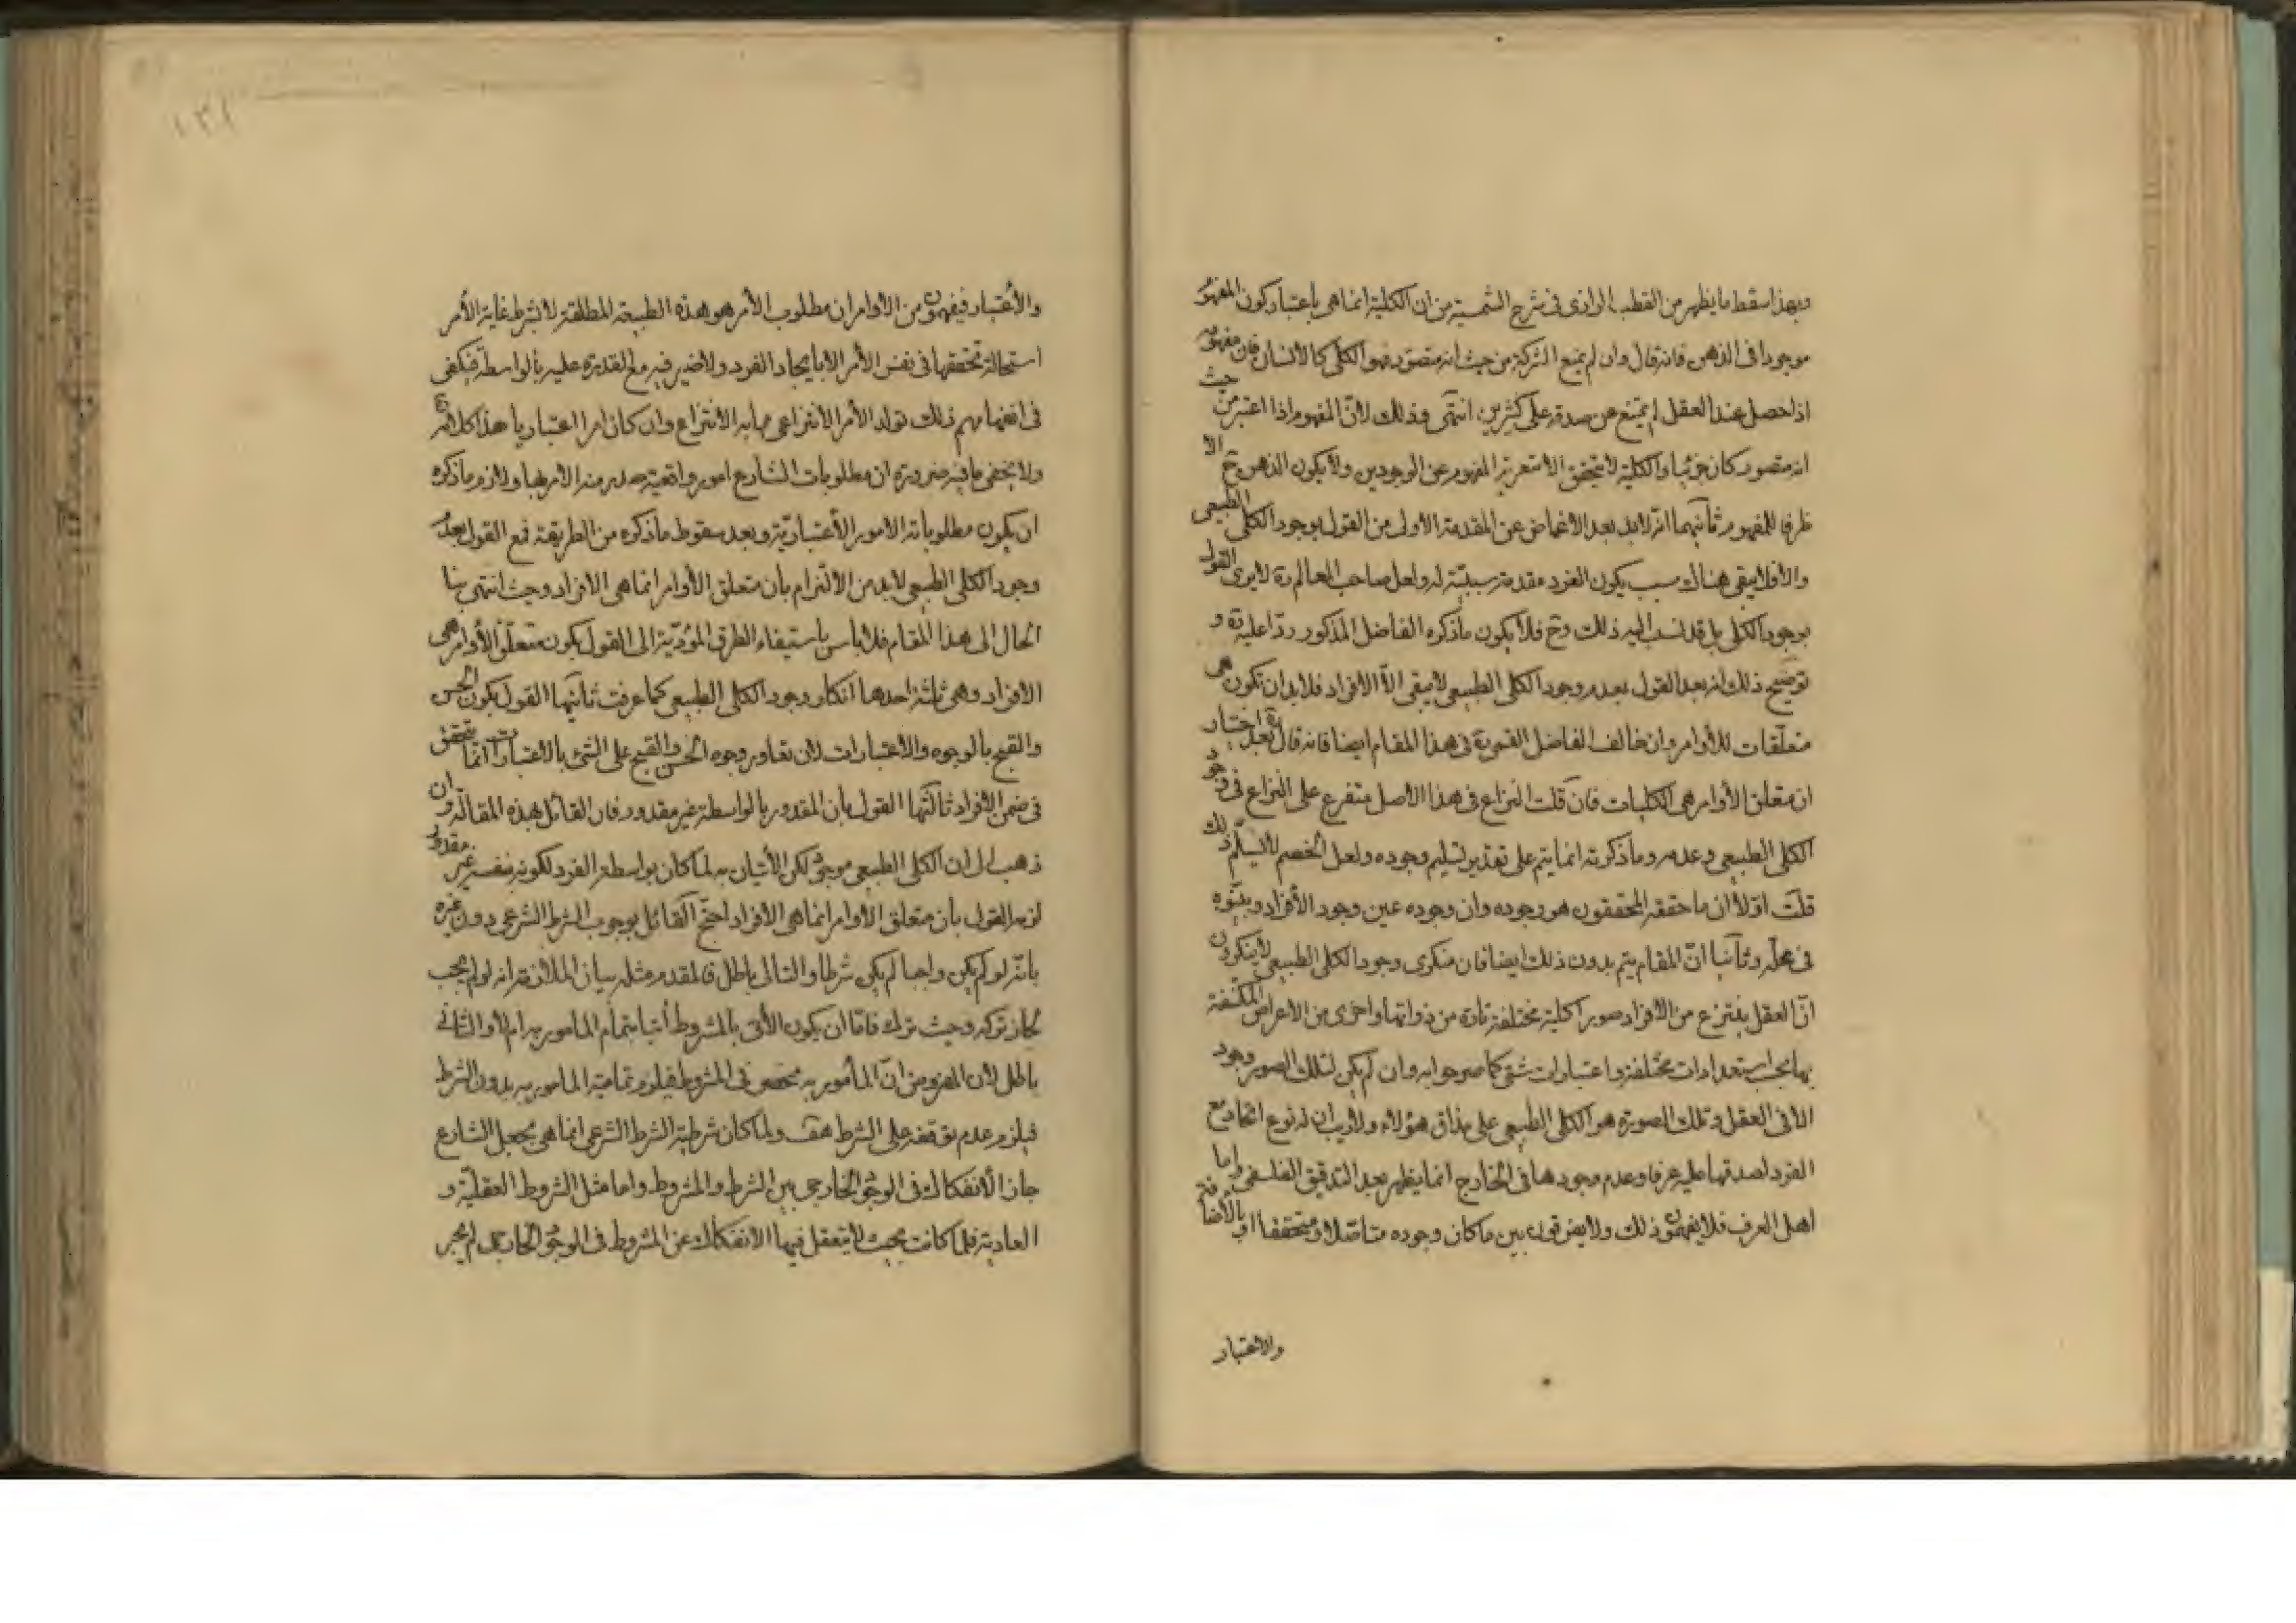 وبهذا سقط ما يظهر من القطب الرازى فى شرح الشمسية من ان الكلية انما هى باعتبار كون المفهوم
موجودا فى الذهن فانه قال وان لم يمنع الشركة من حيث انه متصور فهو الكلى كالانسان فان مفهومه
اذا حصل عند العقل لم يمتنع من صدقه على كثيرين انتهى وذلك لانّ المفهوم اذا اعتبر من حيث
انه متصور كان جزئيا والكلية لا يتحقق الا بتعرية المفهوم عن الوجودين ولا يكون الذهن ح الا
ظرفا للمفهوم ثانيهما انّه لابد بعد الاغماض عن المقدمة الاولى من القول بوجود الكلى الطبيعى
والا فلا يبقى هناك سبب يكون الفرد مقدمة سببيّة له ولعل صاحب المعالم ره لا يرى القول
بوجود الكلى بل قد نسب اليه ذلك وح فلا يكون ما ذكره الفاضل المذكور ردّا عليه ره و
توضيح ذلك انه بعد القول بعدم وجود الكلى الطبيعى لا يبقى الّا الافراد فلابد ان تكون هى
متعلّقات للاوامر وان خالف الفاضل القمى ره فى هذا المقام ايضا فانه قال بعد اختيار
ان متعلق الأوامر هى الكليات فان قلت النزاع فى هذا الاصل متفرع على النزاع فى وجود
الكلى الطبيعى وعدمه وما ذكرته انما يتم على تقدير تسليم وجوده ولعل الخصم لا يسلّم ذلك
قلت اوّلا أن ما حققه المحققون هو وجوده وان وجوده عين وجود الأفراد وبيّنوه
فى محلّه وثانيا انّ المقام يتم بدون ذلك ايضا فان منكرى وجود الكلى الطبيعى لا ينكرون
انّ العقل ينتزع من الافراد صورا كلية مختلفة تارة من ذواتها واخرى من الأعراض المكتنفة
بها بحسب استعدادات مختلفة واعتبارات شتى كما صرحوا به وان لم يكن لتلك الصور وجود
الا فى العقل وتلك الصورة هو الكلى الطبيعى على مذاق هؤلاء ولا ريب ان له نوع اتحاد مع
الفرد لصدقها عليه عرفا وعدم وجودها فى الخارج انما يظهر بعد التدقيق الفلسفى واما
اهل العرف فلا يفهمون ذلك ولا يفرقون بين ما كان وجوده متاصّلا او متحققا او بالأضافة
والاعتبار
١٣١
والأعتبار فيفهمون من الاوامر ان مطلوب الأمر هو هذه الطبيعة المطلقة لا بشرط غاية الأمر
استحالة تحققها فى نفس الأمر الا بايجاد الفرد ولا ضير فيه مع القدرة عليه بالواسطة فيكفى
فى افهامهم ذلك تولد الأمر الانتزاعى مما به الانتزاع وان كان امرا اعتباريا هذا كلامه
ولا يخفى ما فيه ضرورة ان مطلوبات الشارع امور واقعية صدر منه الامر بها ولازم ما ذكره
ان يكون مطلوباته الامور الأعتباريّة وبعد سقوط ما ذكره من الطريقة فمع القول بعدم
وجود الكلى الطبيعى لابد من الالتزام بأن متعلق الأوامر انما هى الافراد وحيث انتهى بنا
الحال الى هذا المقام فلا باس باستيفاء الطرق المؤدّية الى القول بكون متعلّق الأوامر هى
الافراد وهى ثلثة احدها انكار وجود الكلى الطبيعى كما عرفت ثانيها القول بكون الحسن
والقبح بالوجوه والاعتبارات لان تعاور وجوه الحسن والقبح على الشئ بالاعتبارات انما يتحقق
فى ضمن الافراد ثالثها القول بان المقدور بالواسطة غير مقدور فان القائل بهذه المقالة وان
ذهب الى ان الكلى الطبيعى موجود لكن الأتيان به لما كان بواسطة الفرد لكونه بنفسه غير مقدور
لزمه القول بأن متعلق الاوامر انما هى الأفراد احتجّ القائل بوجوب الشرط الشرعى دون غيره
بانّه لو لم يكن واجبا لم يكن شرطا والتالى باطل فالمقدم مثله بيان الملازمة انه لو لم يجب
لجاز تركه وحيث ترك فامّا ان يكون الأتى بالمشروط أتيا بتمام المامور به ام لا والثانى
باطل لأن المفروض انّ المأمور به منحصر فى المشروط فيلزم تمامية المامور به بدون الشرط
فيلزم عدم توقفه على الشرط هف ولما كان شرطية الشرط الشرعى انما هى بجعل الشارع
جاز الأنفكاك فى الوجود الخارجى بين الشرط والمشروط واما مثل الشروط العقليّة و
العادية فلما كانت بحيث لا يتعقل فيها الانفكاك عن المشروط فى الوجود الخارجى لم يجر